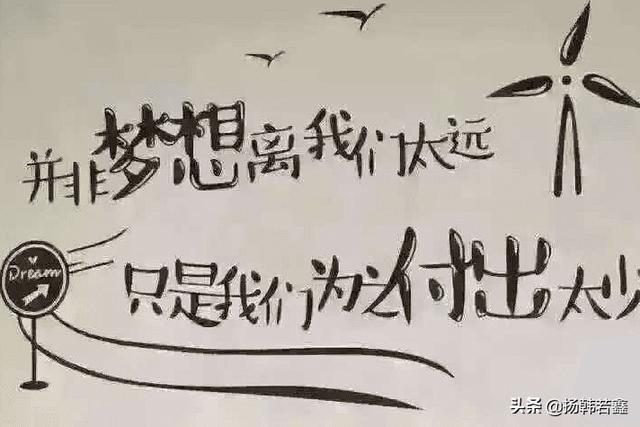 并非梦想离我们太远
Dream
只是我们为之付出太少
头条 @扬韩若鑫